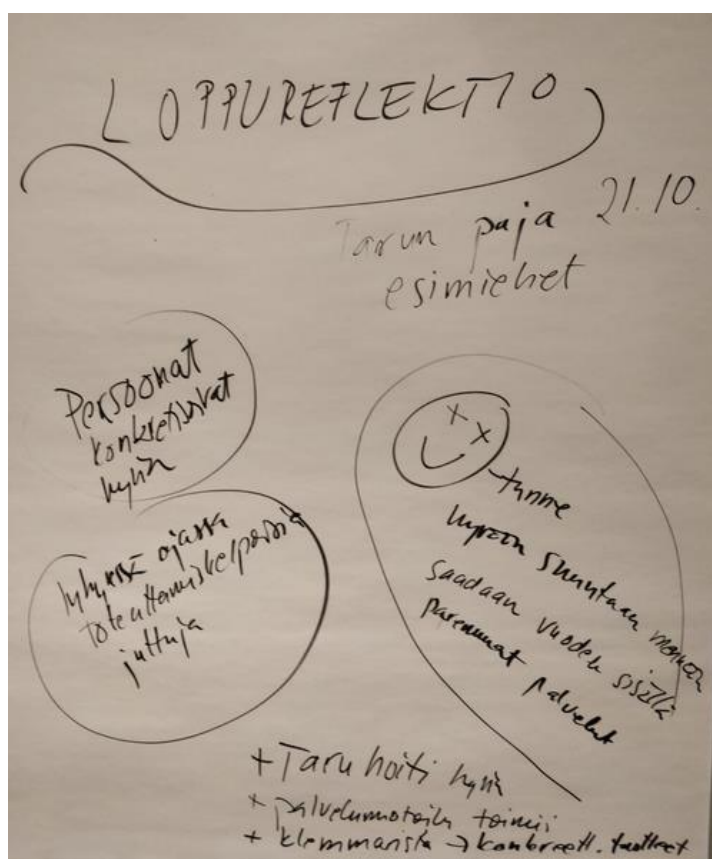 LOPPUREFLEKTIO
Tarun paja 21.10.
esimiehet
Persoonat
konkretisoivat
hyvin
lyhyessä ajassa
toteuttamiskelpoisia
juttuja
-tunne
hyvään suuntaan mennään
saadaan vuoden sisällä
paremmat palvelut
+ Taru hoiti hyvin
+ palvelumuotoilu toimii
+ klemmarista → konkreett. tuotteet